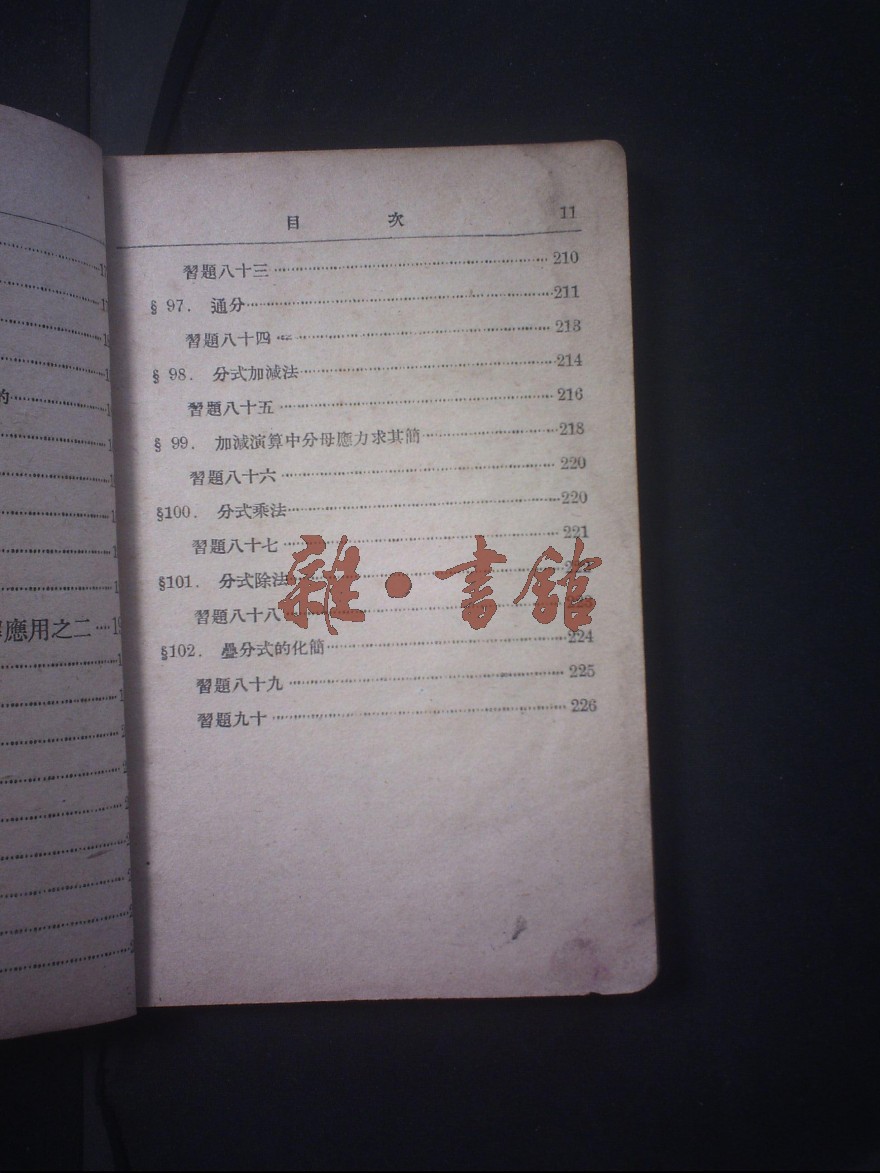 的
應用之二 … 19
目 次 11
習題八十三 … 210
§ 97. 通分 … 211
習題八十四 … 213
§ 98. 分式加減法 … 214
習題八十五 … 216
§ 99. 加減演算中分母應力求其簡 … 218
習題八十六 … 220
§100. 分式乘法 … 220
習題八十七 … 221
§101. 分式除法
習題八十八
§102. 疊分式的化簡 … 224
習題八十九 … 225
習題九十 … 226
雜·書館